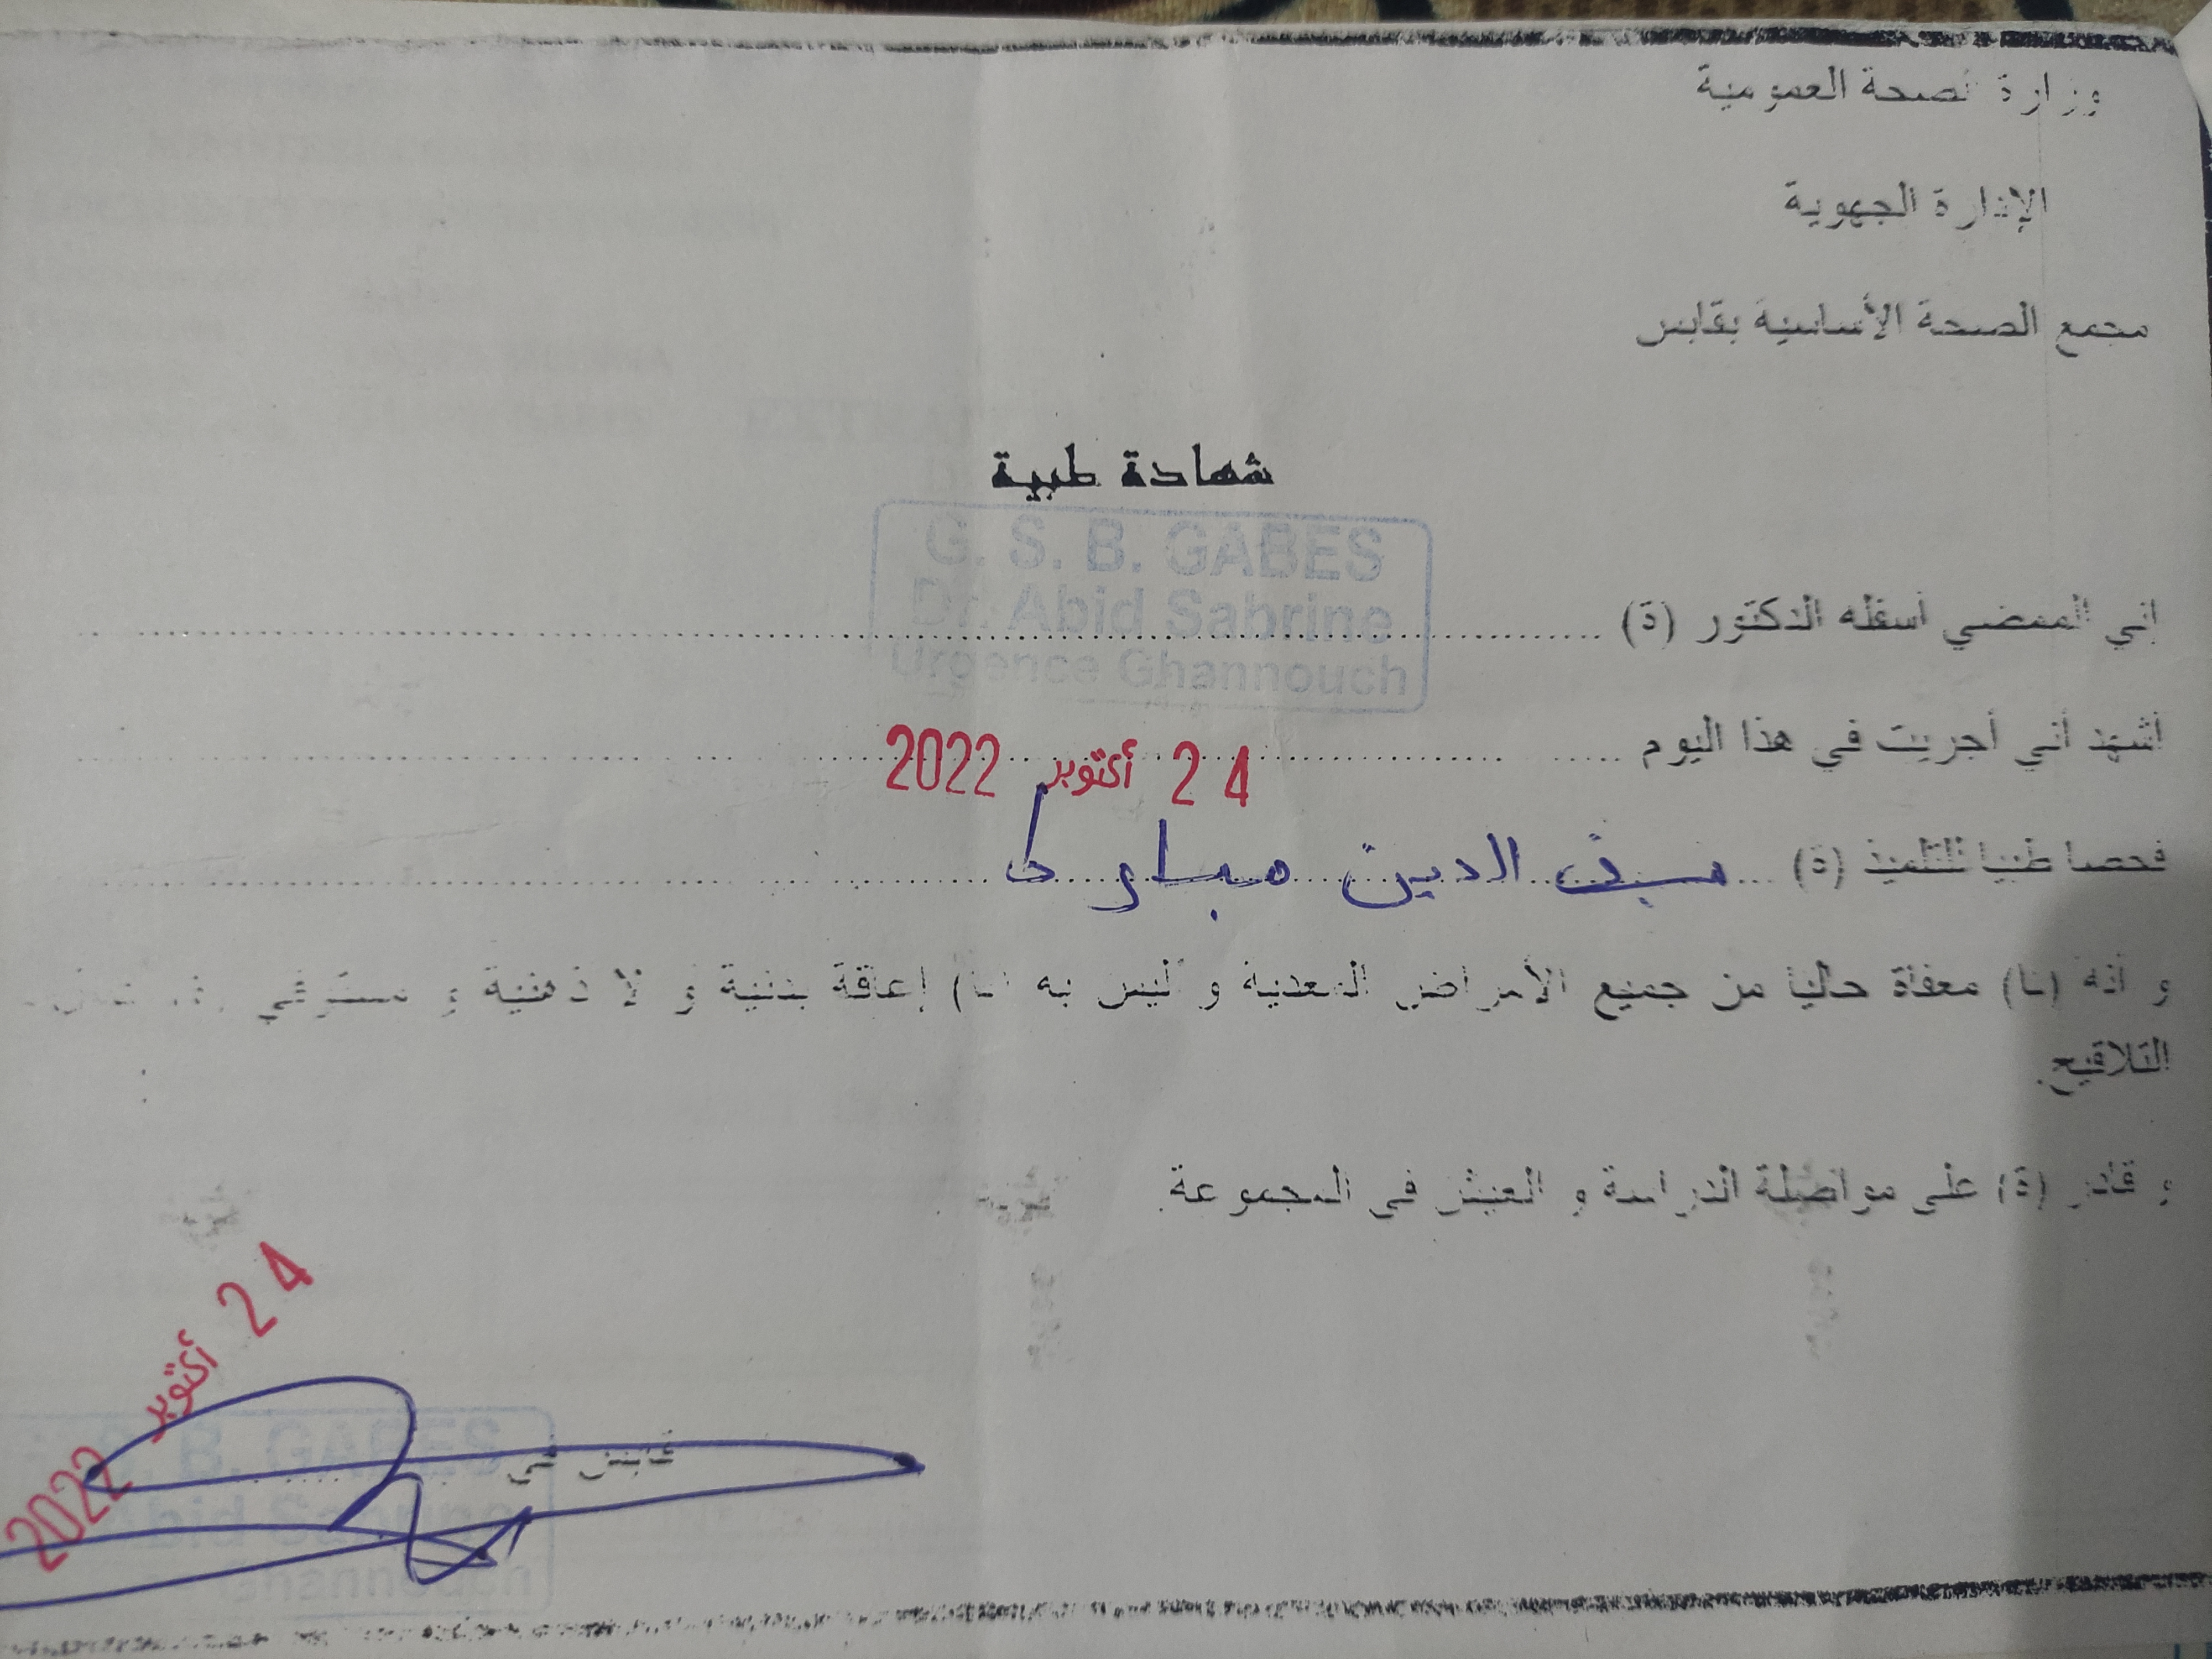 وزارة الصحة العمومية
الإدارة الجهوية
مجمع الصحة الأساسية بقابس
شهادة طبية
G. S. B. GABES
Dr. Abid Sabrine
Urgence Ghannouch
إني الممضي أسفله الدكتور (ة) ........................
أشهد أني أجريت في هذا اليوم ........ 24 أكتوبر 2022 ........
فحصا طبيا للتلميذ (ة) ... سيف الدين مبارك ........
و أنه (ـا) معفاة حاليا من جميع الأمراض المعدية و ليس به (ـا) إعاقة بدنية و لا ذهنية و مستوفي
التلاقيح.
و قادر (ة) على مواصلة الدراسة و العيش في المجموعة.
24 أكتوبر 2022
قابس في ........
B. GABES
Abid Sabrine
Ghannouch